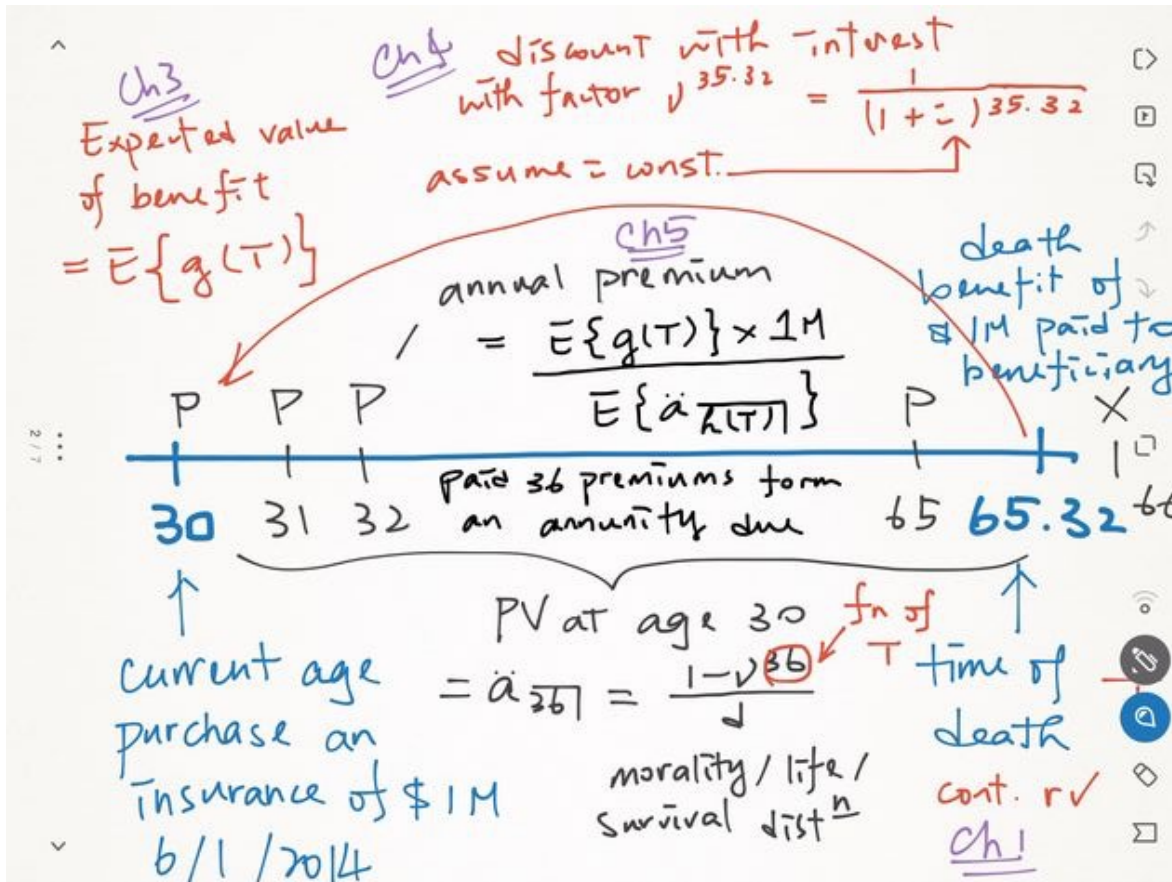 Ch3
Expected value
of benefit
= E{g(T)}
Ch4
discount with interest
with factor v^35.32 = 1/(1+i)^35.32
assume i = const.
Ch5
annual premium
= E{g(T)} x 1M / E{ä h(T)⌉}
death
benefit of
$1M paid to
beneficiary
P P P P X
30 31 32 65 65.32 66
paid 36 premiums form
an annunity due
PV at age 30
= ä 36⌉ = 1-v^36 / d
fn of
T
current age
purchase an
insurance of $1M
6/1/2014
morality/life/
survival dist^n
time of
death
cont. rv
Ch1
2/7